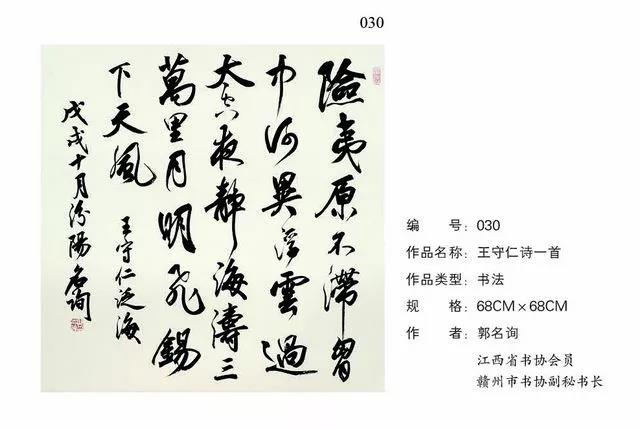 030
險夷原不滯胷
中何異浮雲過
太空夜靜海濤三
萬里月明飛錫
下天風 王守仁泛海
戊戌十月汾陽名询
编 号：030
作品名称：王守仁诗一首
作品类型：书法
规 格：68CM×68CM
作 者：郭名询
江西省书协会员
赣州市书协副秘书长